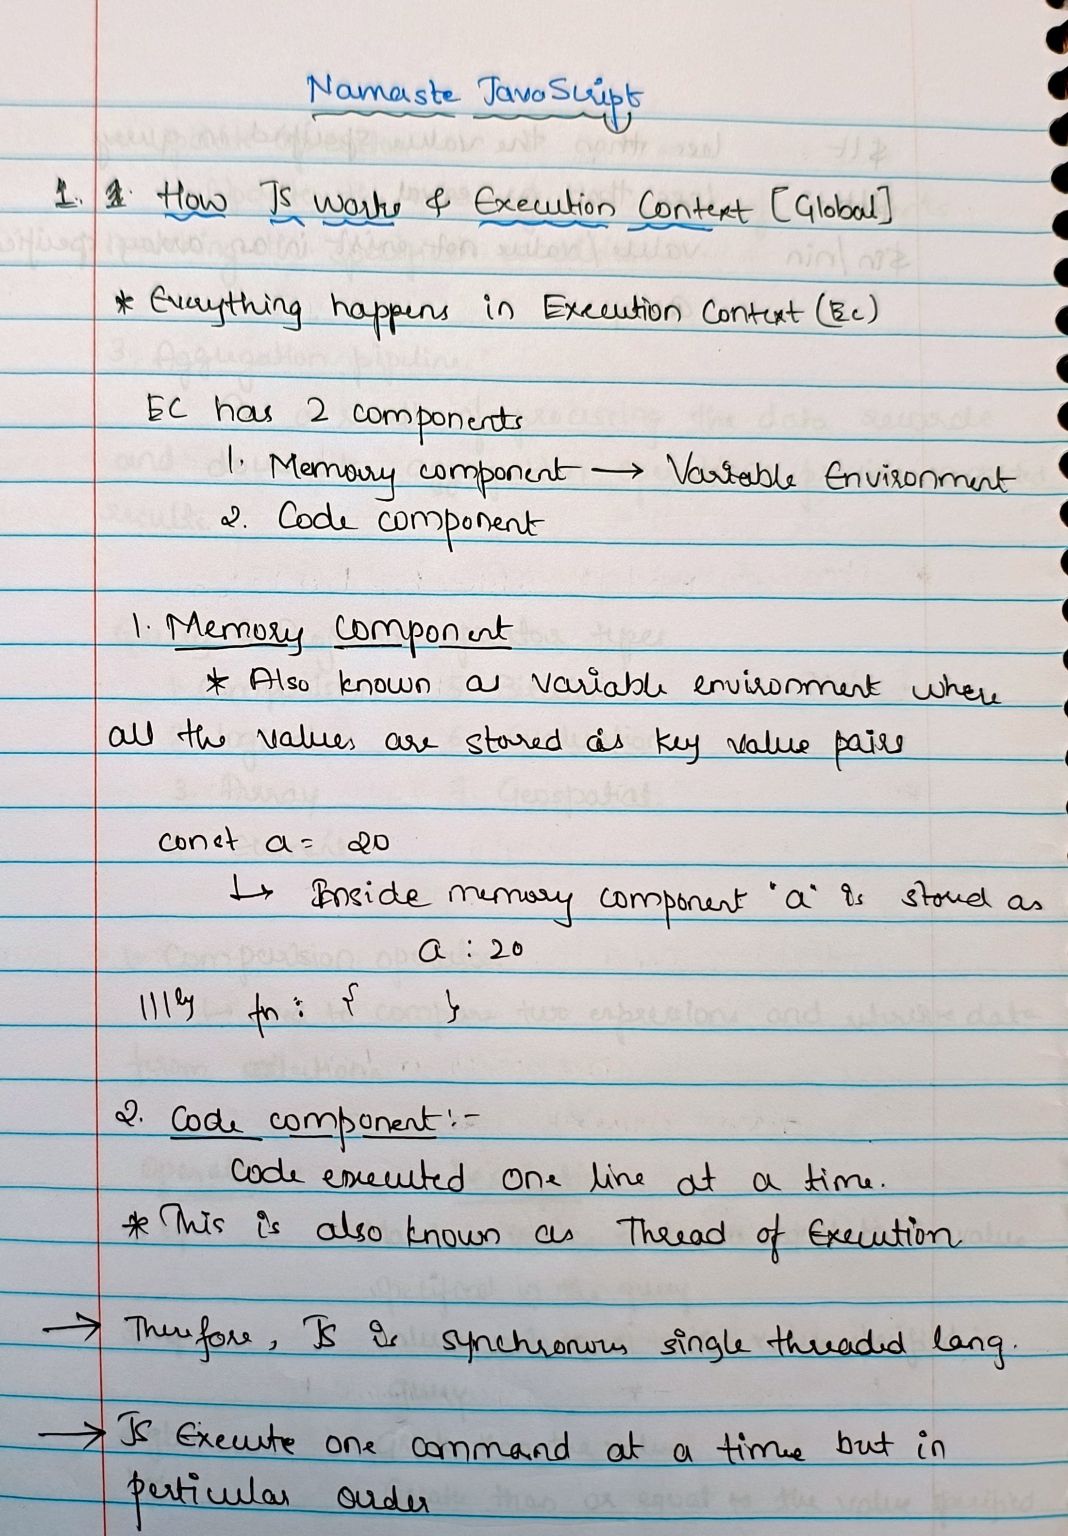 Namaste JavaScript
1. 1. How JS works & Execution Context [Global]
* Everything happens in Execution Context (Ec)
EC has 2 components
1. Memory component → Variable Environment
2. Code component
1. Memory component
* Also known as variable environment where
all the values are stored as key value pairs
const a = 20
↳ Inside memory component 'a' is stored as
a : 20
|||ly fn : { }
2. Code component :-
Code executed one line at a time.
* This is also known as Thread of Execution
→ Therefore, JS is synchronous single threaded lang.
→ JS Execute one command at a time but in
perticular order